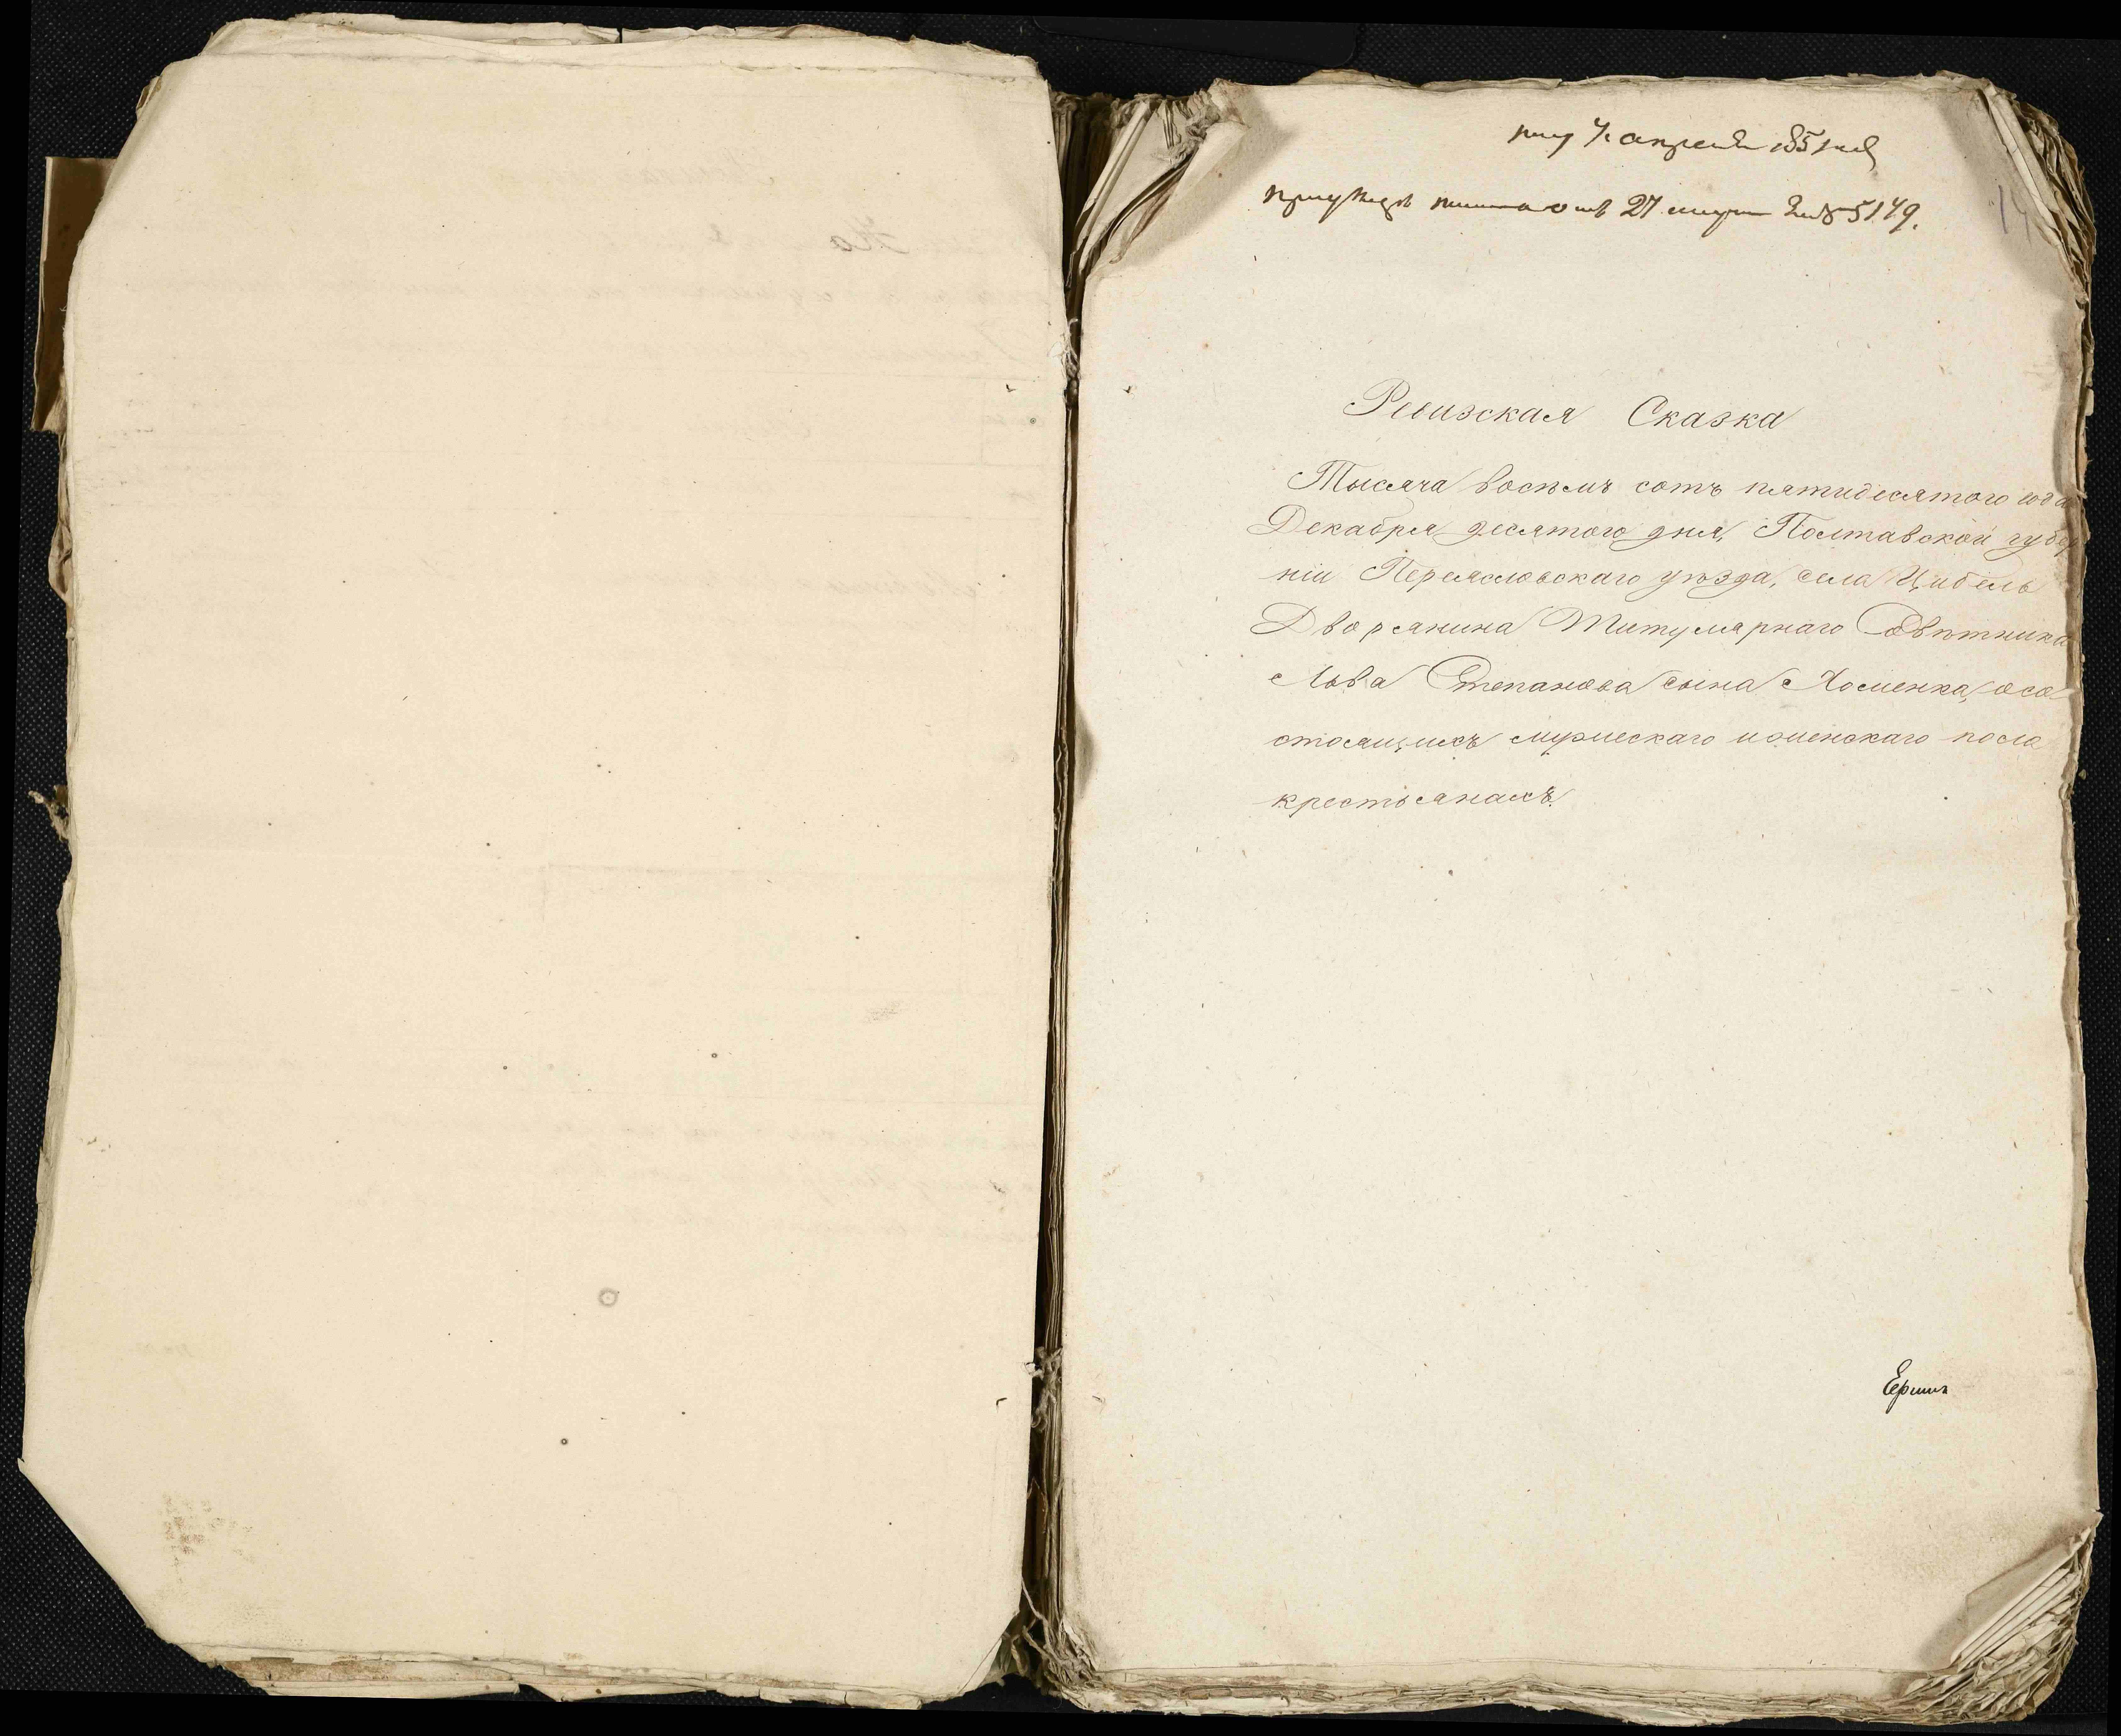 апреля 1851 года
27 за № 5179.
Ревизская Сказка
Тысяча восемь сотъ пятидесятого года
Декабря десятого дня, Полтавской губер
ніи Переясловскаго уѣзда, села Цибель
Дворянина Титулярнаго Совѣтника
Льва Степанова сына Хоменка, осо
стоящихъ мужескаго иженскаго пола
крестьянахъ.